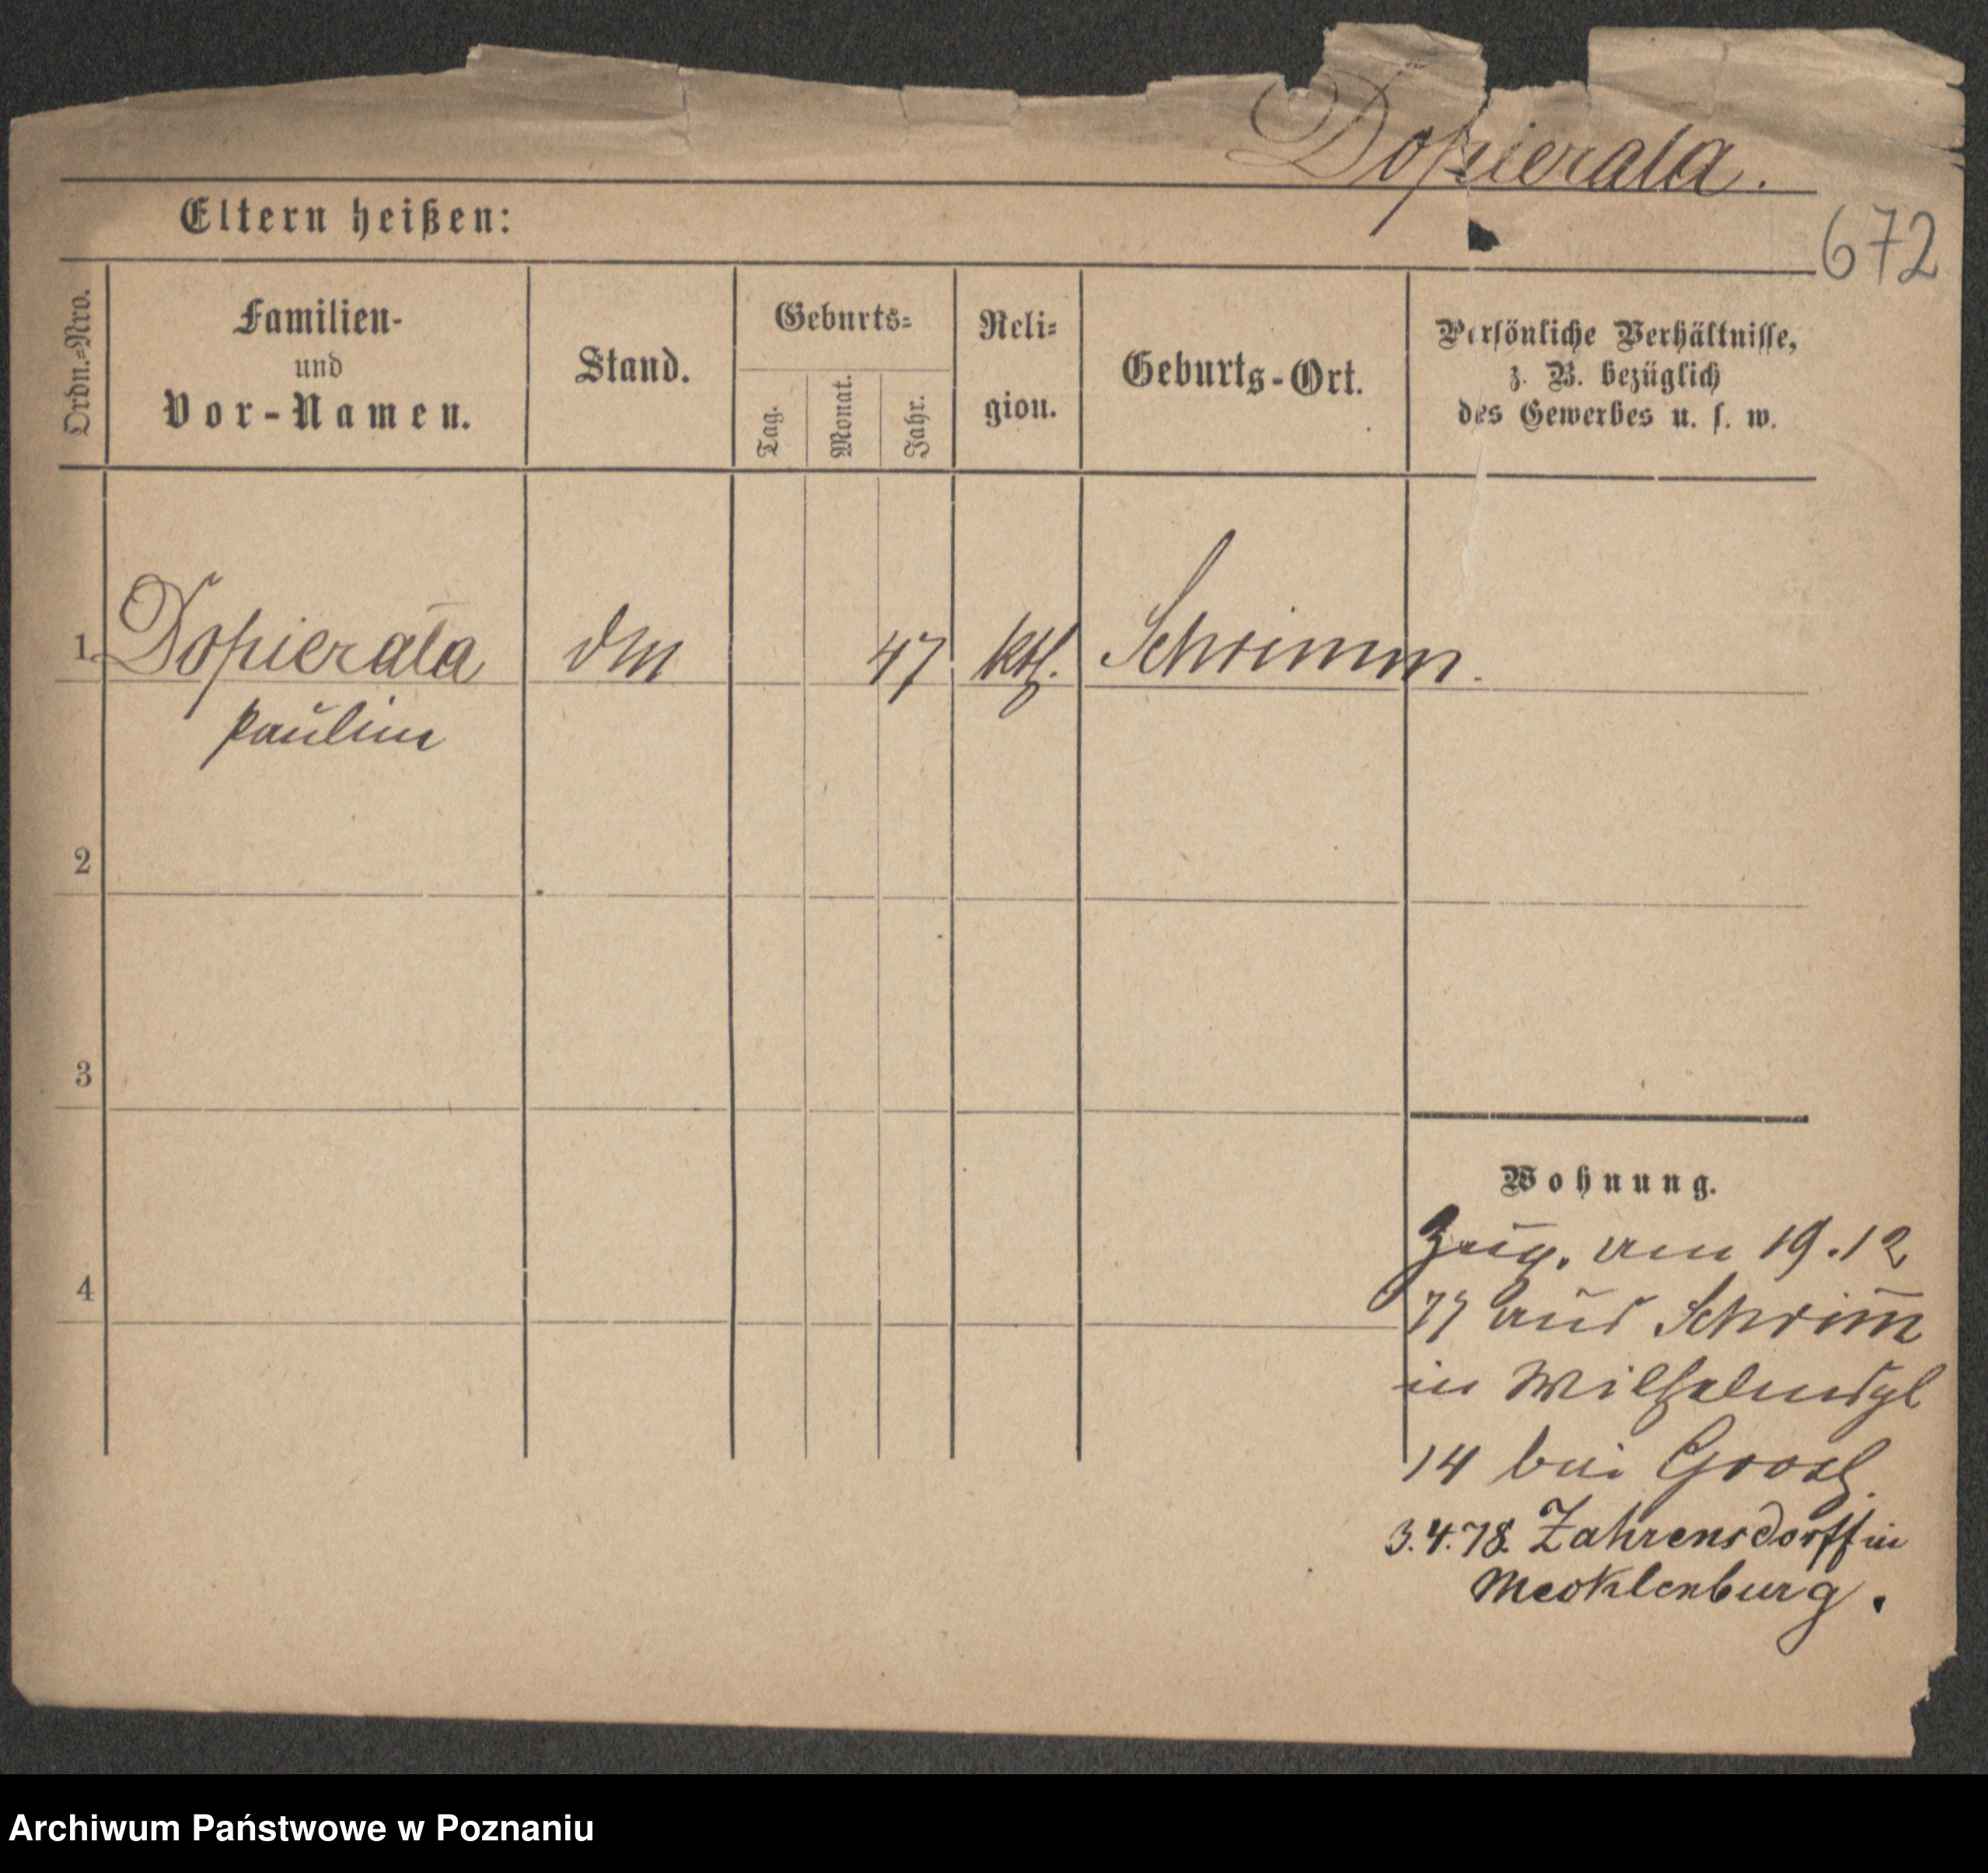 Dopierala.
672
Eltern heißen:
Ordn.-Nro.
Familien-
und
Vor-Namen.
Stand.
Geburts-
Tag.
Monat.
Jahr.
Reli-
gion.
Geburts-Ort.
Persönliche Verhältnisse,
z. B. bezüglich
des Gewerbes u. s. w.
1. Dopierala 47 kth. Schrimm.
Pauline
2
3
4
Wohnung.
Zug. am 19.12
77 aus Schrim̄
in Wilhelmspl
14 bei Grosch.
3.4.78. Zahrensdorff in
Mecklenburg.
Archiwum Państwowe w Poznaniu